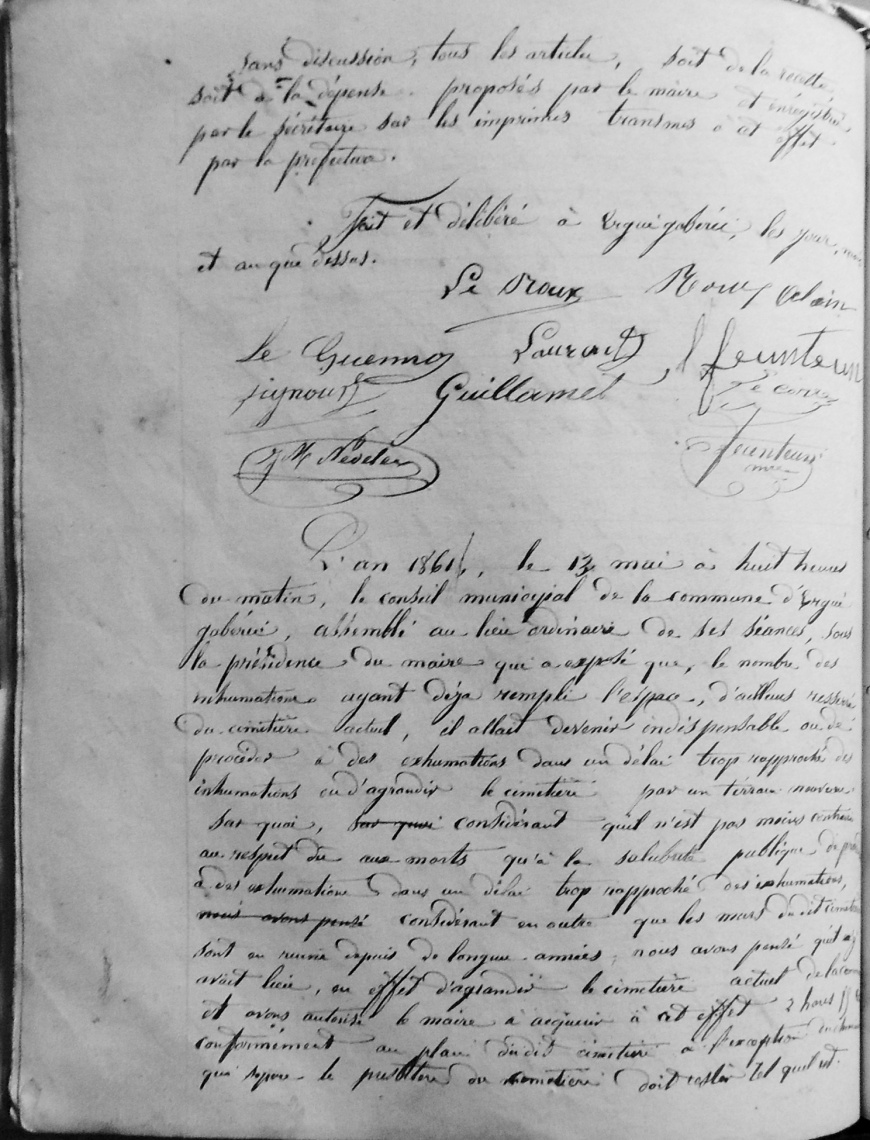 sans discussion, tous les articles, soit de la recette
soit de la dépense proposés par le maire et enrégistrés
par le sécrétaire sur les imprimés transmis à cet effet
par la préfecture.
Fait et délibéré à Ergué gabéric, les jour, mois
et an que dessus.
Le Roux Rouz Alain
Le Guennos Laurent feunteun
signour Guillamet
J M Nédelec feunteun
L'an 1861, le 13 mai à huit heures
du matin, le conseil municipal de la commune d'Ergué
gabéric, assemblé au lieu ordinaire de ses séances, sous
la présidence du maire qui a exposé que, le nombre des
inhumations ayant déja rempli l'espace, d'ailleurs resserré
du cimetière actuel, il allait devenir indispensable ou de
procéder à des exhumations dans un délai trop rapproché des
inhumations ou d'agrandir le cimetière par un terrain nouveau
sur quoi, sur quoi considérant qu'il n'est pas moins contraire
au respect du aux morts qu'à la salubrité publique de
à des exhumations dans un délai trop rapproché des inhumations,
nous avons pensé considérant en outre que les murs du dit cimetière
sont en ruine depuis de longue années, nous avons pensé qu'il y
avait lieu, en effet d'agrandir le cimetière actuel de la
et avons autorisé le maire à acquérir à cet effet 2
conformément au plan dudit cimetière à l'exception
qui sépare le presbitère du cimetière doit rester tel quel est.